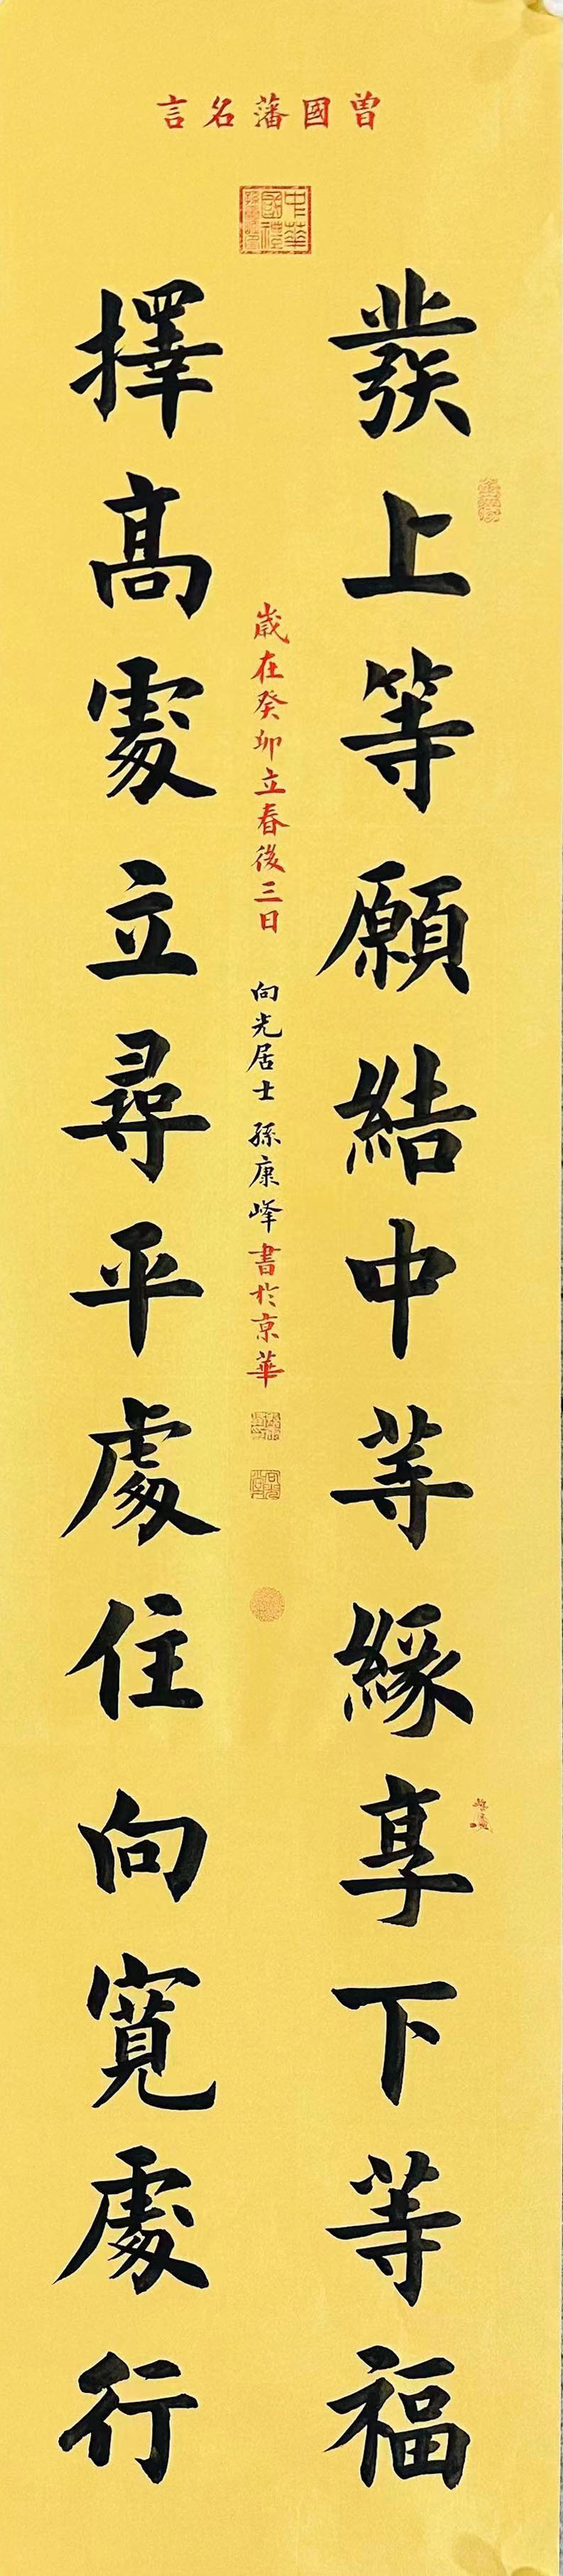 曾國藩名言
發上等願結中等緣享下等福
擇高處立尋平處住向寬處行
歲在癸卯立春後三日 向光居士 孫康峰書於京華